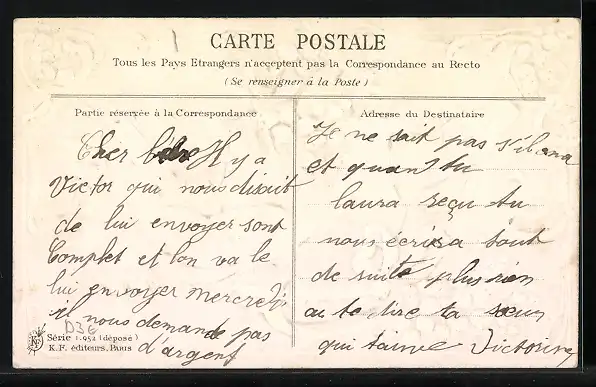 CARTE POSTALE
Tous les Pays Etrangers n'acceptent pas la Correspondance au Recto
(Se renseigner à la Poste)
Partie réservée à la Correspondance
Cher Il y a
Victor qui nous disait
de lui envoyer sont
Complet et l'on va le
lui envoyer mercredi
il nous demande pas
d'argent
D36
Série 1.952 (déposé)
K.F. éditeurs, Paris
Adresse du Destinataire
Je ne sait pas s'il
et quand tu
laura reçu tu
nous écrira tout
de suite plus rien
a te dire ta sœur
qui t'aime Victorine